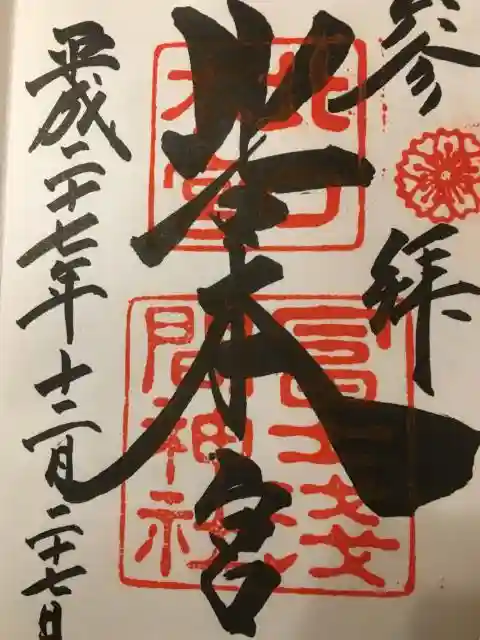 参拝
本宮
北口
本宮
冨士浅
間神社
平成二十七年十二月二十七日